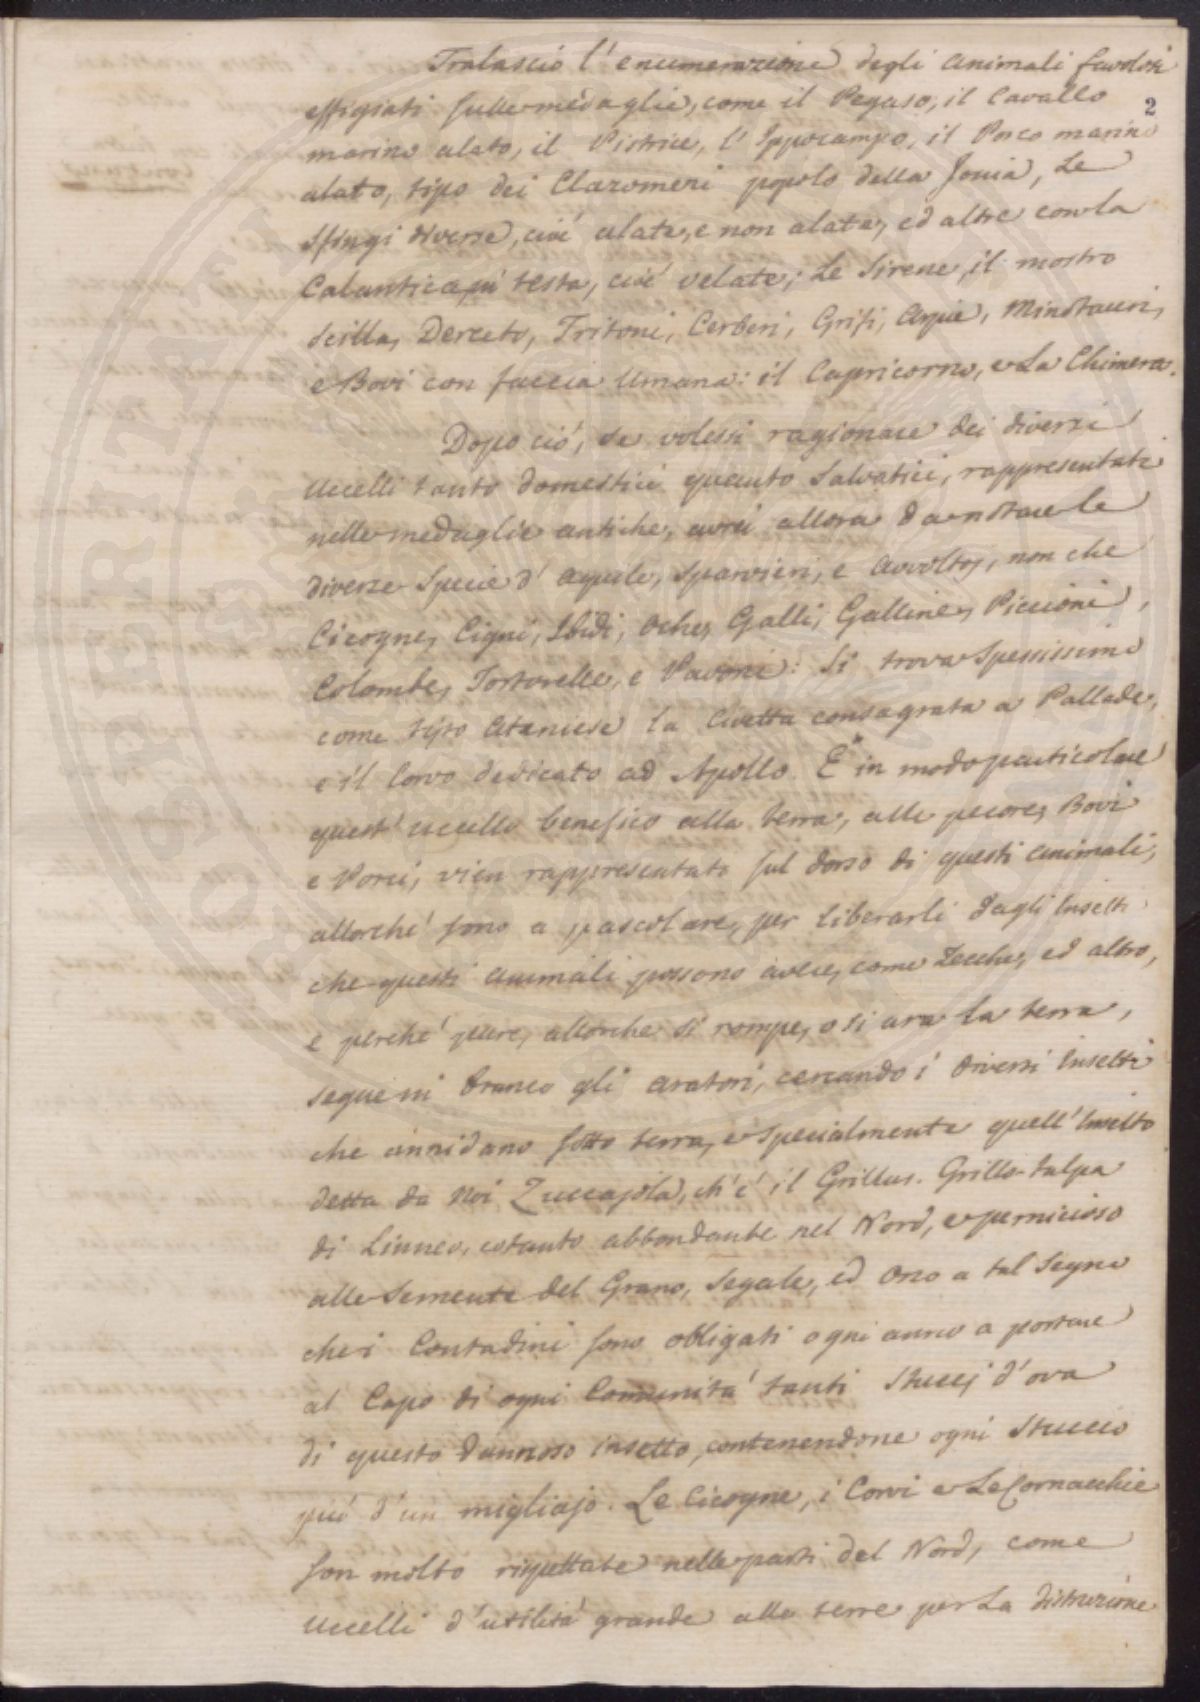 Tralascio l'enumerazione degli animali favolosi
2
effigiati sulle medaglie, come il Pegaso, il Cavallo
marino alato, il Pistrice, l'Ippocampo, il Porco marino
alato, tipo dei Clazomeni popolo della Jonia, Le
Sfingi diverse, cioé alate, e non alate, ed altre con la
Calantica in testa, cioé velate; Le Sirene, il mostro
Scilla, Derceto, Tritoni, Cerberi, Grifi, Arpie, Minotauri,
e Bovi con faccia Umana: il Capricorno, e La Chimera.
Dopo ció, se volessi ragionare dei diversi
Uccelli tanto domestici quanto Salvatici, rappresentati
nelle medaglie antiche, avrei allora da notare le
diverse Specie d'Aquile, Sparvieri, e Avvoltoj, non che
Cicogne, Cigni, Ibidi, Oche, Galli, Galline, Piccioni,
Colombe, Tortorelle, e Pavoni: Si trova Spessissimo
come tipo Ateniese la Civetta consagrata a Pallade,
e il Corvo dedicato ad Apollo. E in modo particolare
quest'uccello benefico alla terra, alle pecore, Bovi
e Porci, vien rappresentato sul dorso di questi animali,
allorché sono a pascolare, per liberarli dagli Insetti
che questi animali possono avere, come Zecche, ed altro,
e perché pure, allorche si rompe, o si ara la terra,
segue in branco gli aratori, cercando i diversi Insetti
che annidano sotto terra, e Specialmente quell'Insetto
detta da Noi Zuccajola, ch'é il Grillus. Grillo-talpa
di Linneo, cotanto abbondante nel Nord, e pernicioso
alle Semente del Grano, Segale, ed Orzo a tal Segno
che i Contadini sono obligati ogni anno a portare
al Capo di ogni Comunitá tanti Stuccj d'ova
di questo dannoso insetto, contenendone ogni Stuccio
piú d'un migliajo. Le Cicogne, i Corvi e Le Cornacchie
son molto rispettate nelle parti del Nord, come
Uccelli d'utilitá grande alle terre per La distruzione